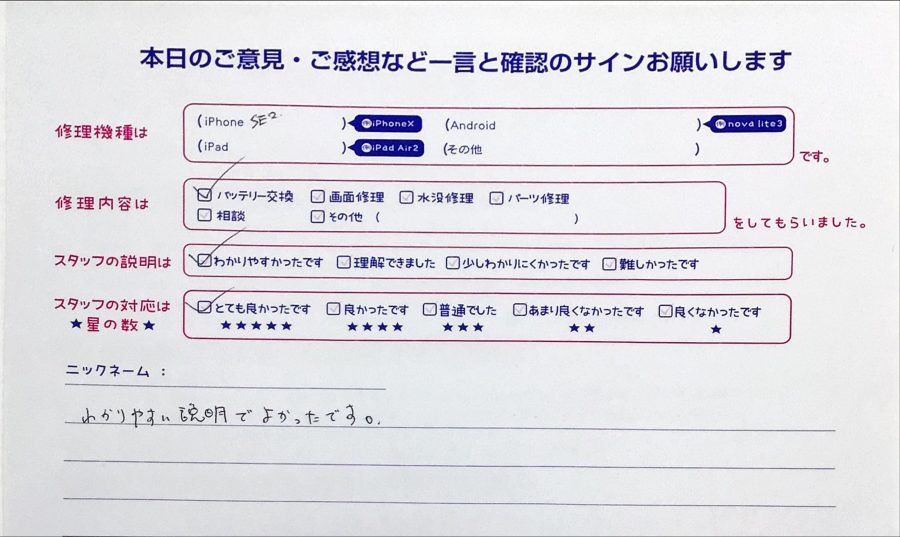 本日のご意見・ご感想など一言と確認のサインお願いします
修理機種は
(iPhone SE2. ) 例 iPhoneX (Android ) 例 nova lite3
(iPad ) 例 iPad Air2 (その他 ) です。
修理内容は
バッテリー交換 画面修理 水没修理 パーツ修理
相談 その他 ( ) をしてもらいました。
スタッフの説明は わかりやすかったです 理解できました 少しわかりにくかったです 難しかったです
スタッフの対応は とても良かったです 良かったです 普通でした あまり良くなかったです 良くなかったです
★星の数★ ★★★★★ ★★★★ ★★★ ★★ ★
ニックネーム :
わかりやすい説明でよかったです。